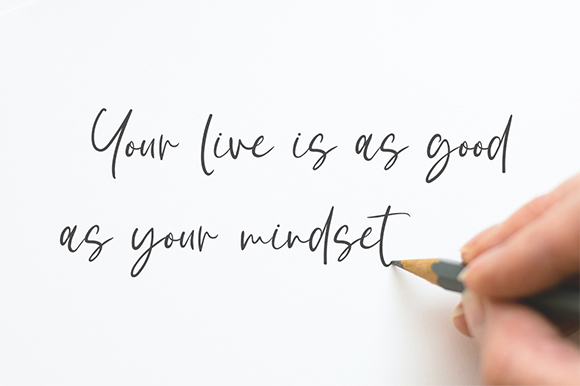 Your live is as good
as your mindset